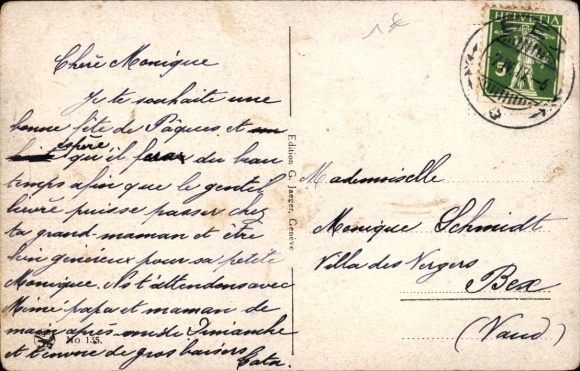 Chère Monique
Je te souhaite une
bonne fête de Pâques, et
espère
qu'il fera du beau
temps afin que le gentil
lièvre puisse passer chez
ta grand-maman et être
bien généreux pour sa petite
Monique. Ns t'attendons avec
Mimé papa et maman de
main après-midi Dimanche
et t'envoie de gros baisers
Edition G. Jaeger, Genève
No 135.
HELVETIA
5
BEX
Mademoiselle
Monique Schmidt
Villa des Vergers
Bex
(Vaud)